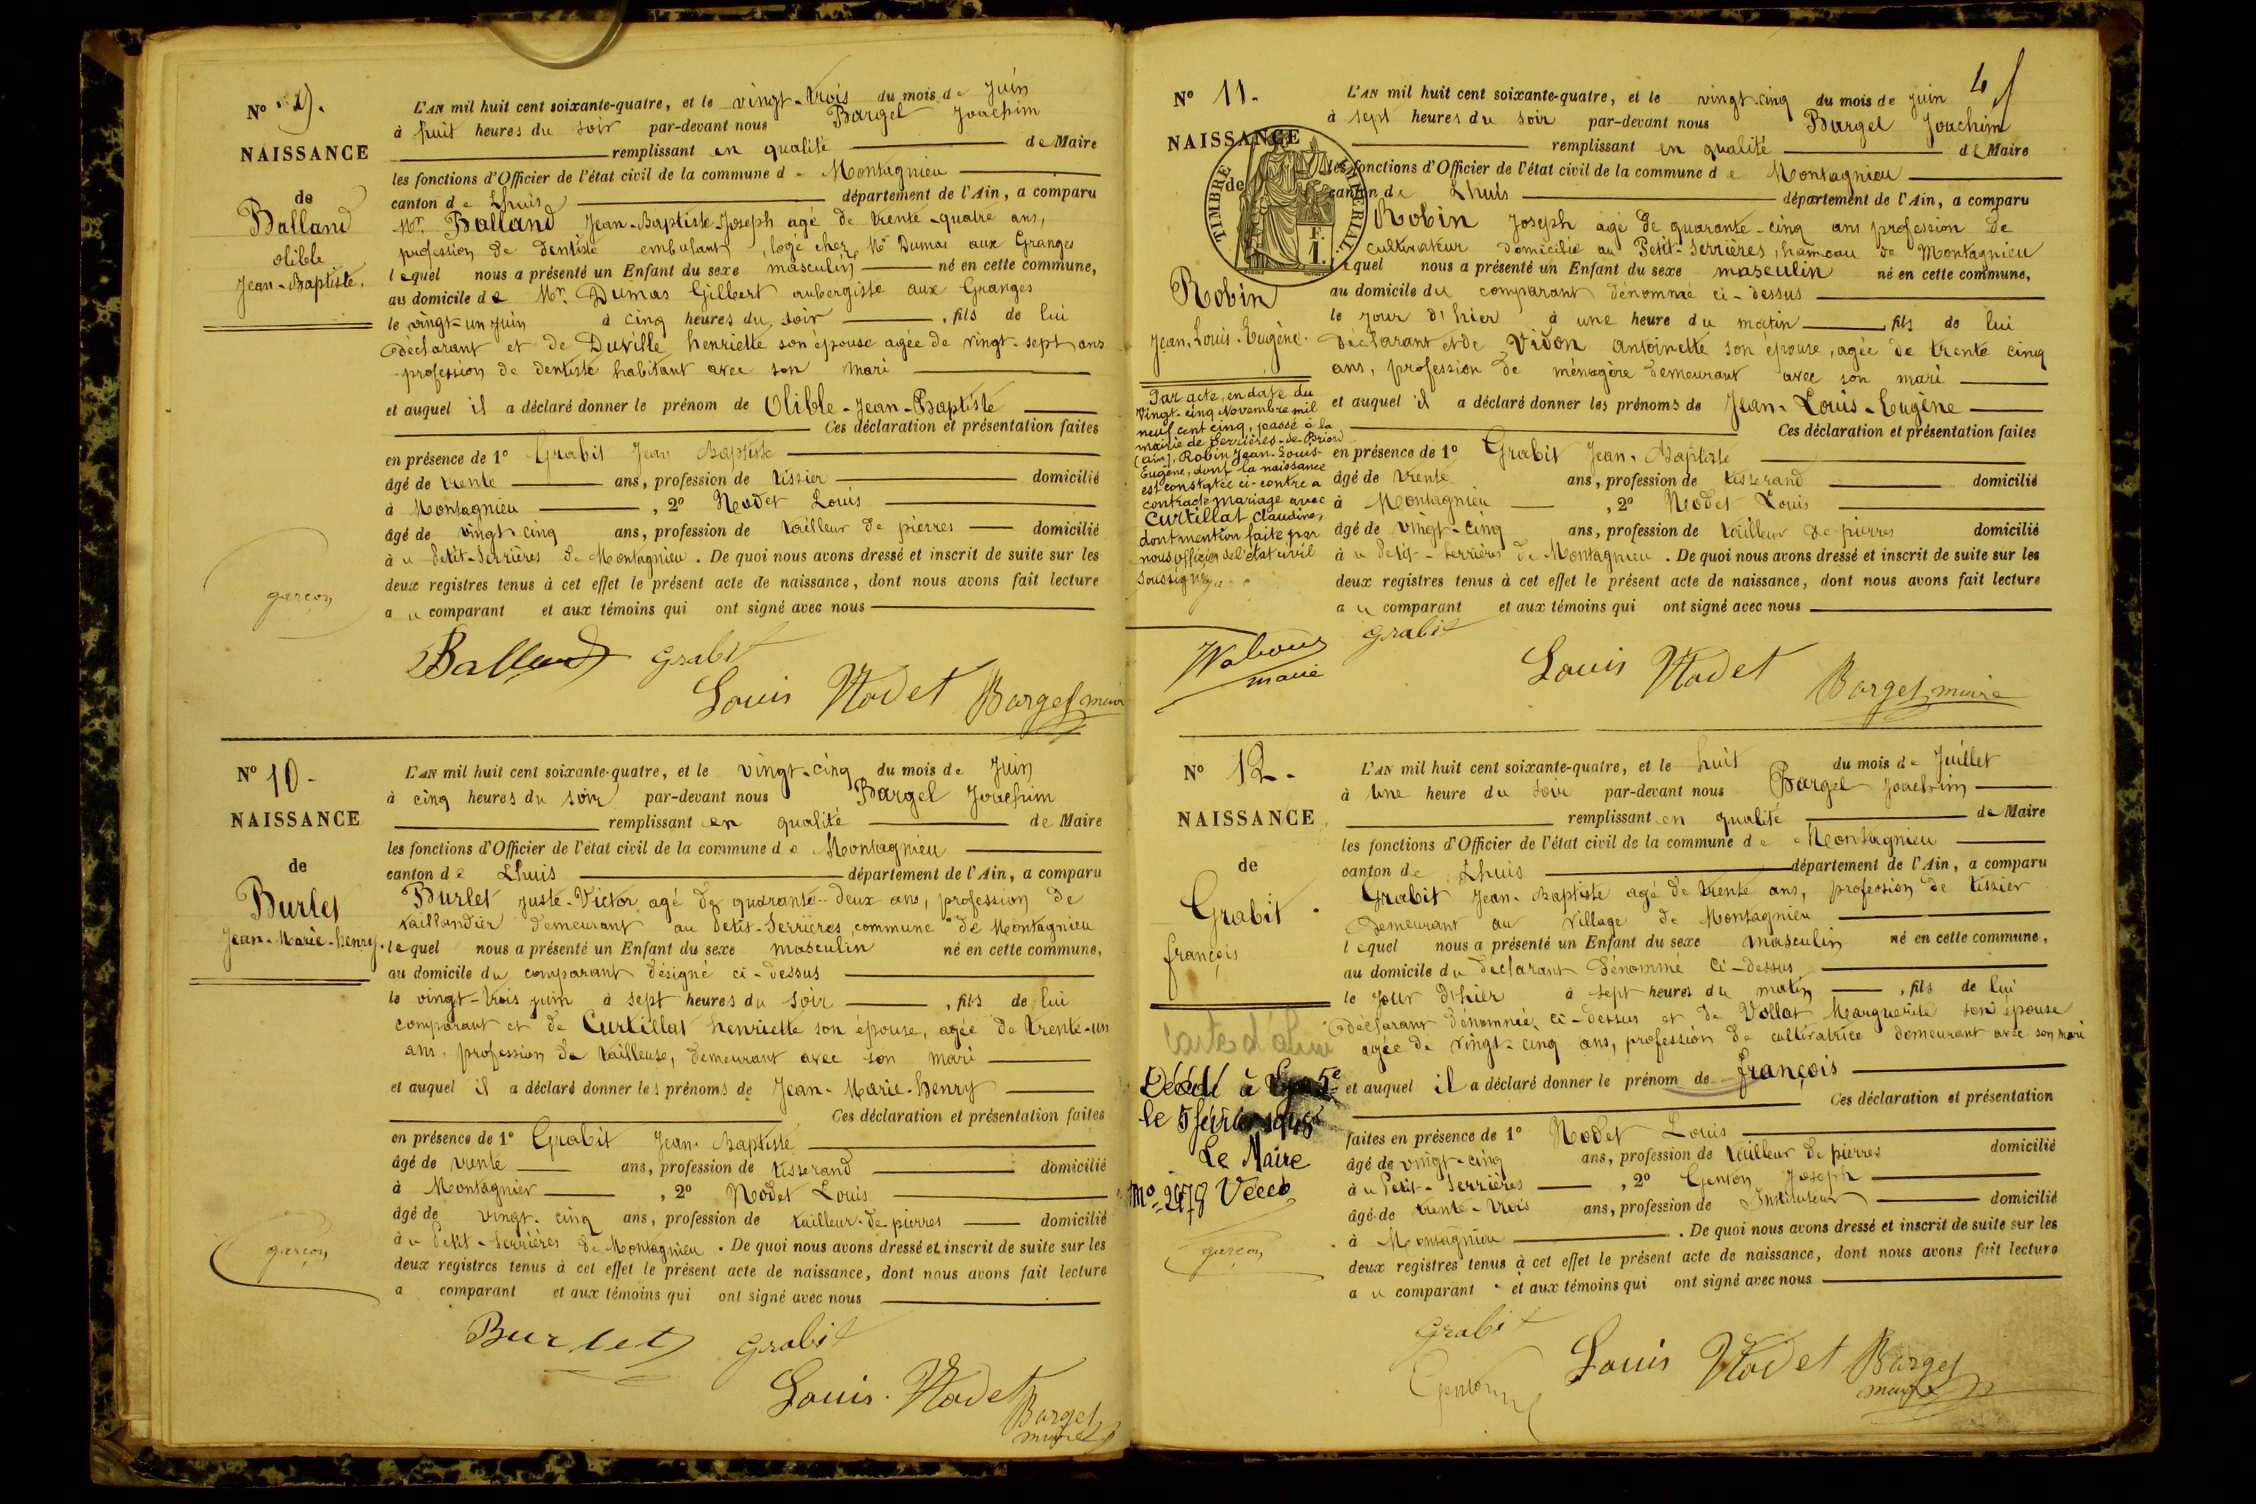 N° 9.
NAISSANCE
de
Balland
olible
Jean-Baptiste.
garçon
L'AN mil huit cent soixante-quatre, et le vingt-trois du mois de Juin
à huit heures du soir par-devant nous Bargel Joachim
remplissant en qualité de Maire
les fonctions d'Officier de l'état civil de la commune de Montagnieu
canton de Lhuis département de l'Ain, a comparu
Mr. Balland Jean-Baptiste-Joseph agé de trente-quatre ans,
profession de dentiste embulant, logé chez Mr Dumas aux Granges
lequel nous a présenté un Enfant du sexe masculin né en cette commune,
au domicile de Mr. Dumas Gilbert aubergiste aux Granges
le vingt-un juin à cinq heures du soir, fils de lui
déclarant et de Duville henriette son épouse agée de vingt-sept ans
profession de dentiste habitant avec son mari
et auquel il a déclaré donner le prénom de Olible-Jean-Baptiste
Ces déclaration et présentation faites
en présence de 1° Grabit Jean Baptiste
âgé de trente ans, profession de tissier domicilié
à Montagnieu, 2° Nodet Louis
âgé de vingt-cinq ans, profession de tailleur de pierres domicilié
à u Petit-Serrières de Montagnieu. De quoi nous avons dressé et inscrit de suite sur les
deux registres tenus à cet effet le présent acte de naissance, dont nous avons fait lecture
a u comparant et aux témoins qui ont signé avec nous
Balland Grabit
Louis Nodet Bargel maire
N° 10-
NAISSANCE
de
Burlet
Jean-Marie-henry.
garçon
L'AN mil huit cent soixante-quatre, et le vingt-cinq du mois de Juin
à cinq heures du soir par-devant nous Bargel Joachim
remplissant en qualité de Maire
les fonctions d'Officier de l'état civil de la commune de Montagnieu
canton de Lhuis département de l'Ain, a comparu
Burlet juste-Victor agé de quarante-deux ans, profession de
taillandier demeurant au Petit-Serrières, commune de Montagnieu
lequel nous a présenté un Enfant du sexe masculin né en cette commune,
au domicile du comparant désigné ci-dessus
le vingt-trois juin à sept heures du soir, fils de lui
comparant et de Curtillat henriette son épouse, agée de trente-un
ans, profession de tailleuse, demeurant avec son mari
et auquel il a déclaré donner les prénoms de Jean-Marie-henry
Ces déclaration et présentation faites
en présence de 1° Grabit Jean-Baptiste
âgé de trente ans, profession de tisserand domicilié
à Montagnieu, 2° Nodet Louis
âgé de vingt-cinq ans, profession de tailleur-de-pierres domicilié
à u Petit-Serrières de Montagnieu. De quoi nous avons dressé et inscrit de suite sur les
deux registres tenus à cet effet le présent acte de naissance, dont nous avons fait lecture
a comparant et aux témoins qui ont signé avec nous
Burlet Grabit
Louis Nodet Bargel
maire
N° 11.
NAISSANCE
de
TIMBRE IMPÉRIAL
F.
1.
Robin
Jean-Louis-Eugène.
Par acte, en date du
Vingt-cinq Novembre mil
neuf cent cinq, passé à la
mairie de Serrières-de-Briord
(ain), Robin Jean-Louis-
Eugène, dont la naissance
est constatée ci-contre a
contracté mariage avec
Curtillat Claudine,
dont mention faite par
nous officier de l'état civil
soussigné
maire
L'AN mil huit cent soixante-quatre, et le vingt-cinq du mois de juin
à sept heures du soir par-devant nous Bargel Joachim
remplissant en qualité de Maire
les fonctions d'Officier de l'état civil de la commune de Montagnieu
canton de Lhuis département de l'Ain, a comparu
Robin Joseph agé de quarante-cinq ans profession de
cultivateur domicilié au Petit-Serrières, hameau de Montagnieu
lequel nous a présenté un Enfant du sexe masculin né en cette commune,
au domicile du comparant dénommé ci-dessus
le jour d'hier à une heure du matin, fils de lui
déclarant et de Vidon antoinette son épouse, agée de trente cinq
ans, profession de ménagère demeurant avec son mari
et auquel il a déclaré donner les prénoms de Jean-Louis-Eugène
Ces déclaration et présentation faites
en présence de 1° Grabit Jean-Baptiste
âgé de trente ans, profession de tisserand domicilié
à Montagnieu, 2° Nodet Louis
âgé de vingt-cinq ans, profession de tailleur de pierres domicilié
à u Petit-Serrières de Montagnieu. De quoi nous avons dressé et inscrit de suite sur les
deux registres tenus à cet effet le présent acte de naissance, dont nous avons fait lecture
a u comparant et aux témoins qui ont signé avec nous
Grabit
Louis Nodet Bargel maire
N° 12.
NAISSANCE
de
Grabit
françois
Décédé à
le 5 février
Le Maire
garçon
L'AN mil huit cent soixante-quatre, et le huit du mois de Juillet
à une heure du soir par-devant nous Bargel Joachim
remplissant en qualité de Maire
les fonctions d'Officier de l'état civil de la commune de Montagnieu
canton de Lhuis département de l'Ain, a comparu
Grabit Jean-Baptiste agé de trente ans, profession de tissier
demeurant au village de Montagnieu
lequel nous a présenté un Enfant du sexe masculin né en cette commune,
au domicile du déclarant dénommé ci-dessus
le jour d'hier à sept heures du matin, fils de lui
déclarant dénommé ci-dessus et de Vollat Marguerite son épouse
agée de vingt-cinq ans, profession de cultivatrice demeurant avec son mari
et auquel il a déclaré donner le prénom de françois
Ces déclaration et présentation
faites en présence de 1° Nodet Louis
âgé de vingt-cinq ans, profession de tailleur de pierres domicilié
à u Petit-Serrières, 2° Genton Joseph
âgé de trente-trois ans, profession de Instituteur domicilié
à Montagnieu. De quoi nous avons dressé et inscrit de suite sur les
deux registres tenus à cet effet le présent acte de naissance, dont nous avons fait lecture
a u comparant et aux témoins qui ont signé avec nous
Grabit
Genton Louis Nodet Bargel
maire